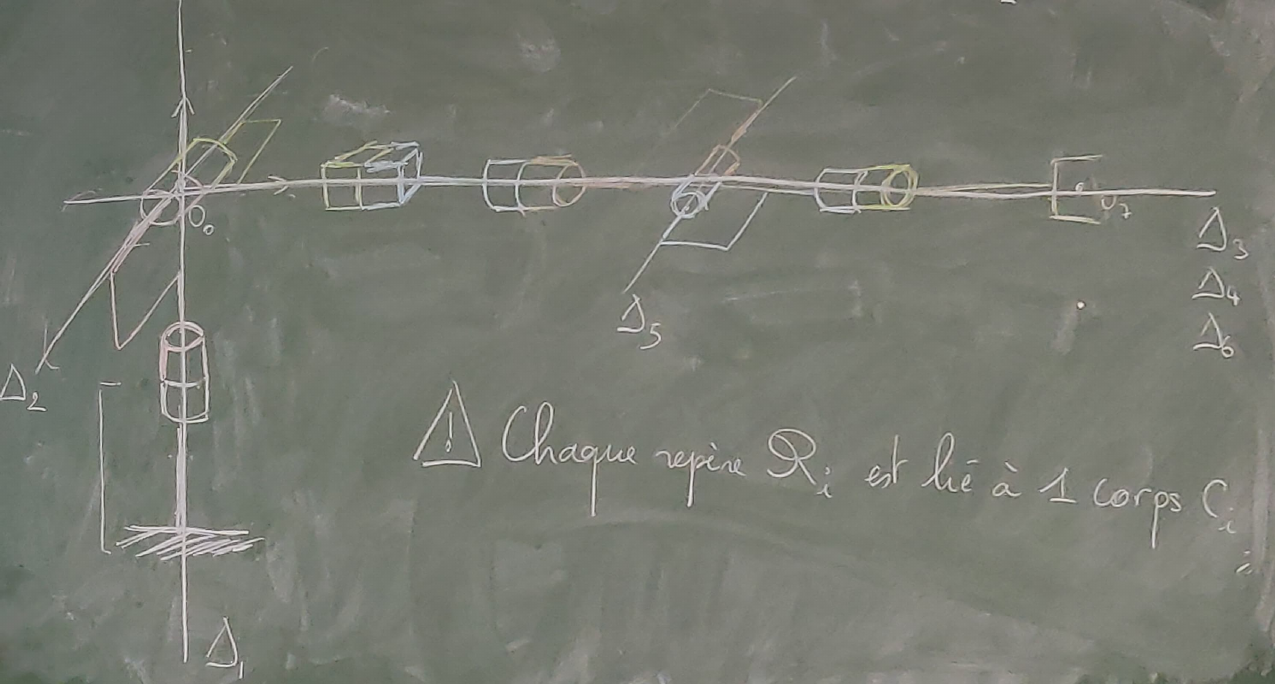 O₀
O₇
Δ₃
Δ₄
Δ₆
Δ₅
Δ₂
! Chaque repère Rᵢ est lié à 1 corps Cᵢ
Δ₁